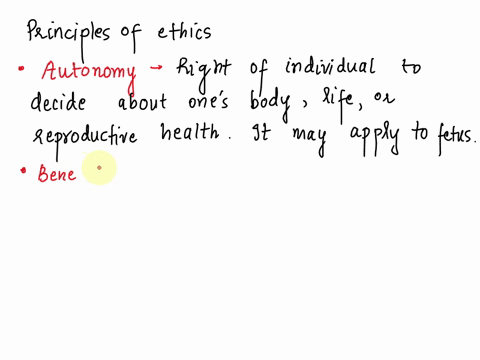 Principles of ethics
• Autonomy → Right of individual to
decide about one's body, life, or
reproductive health. It may apply to fetus.
• Bene